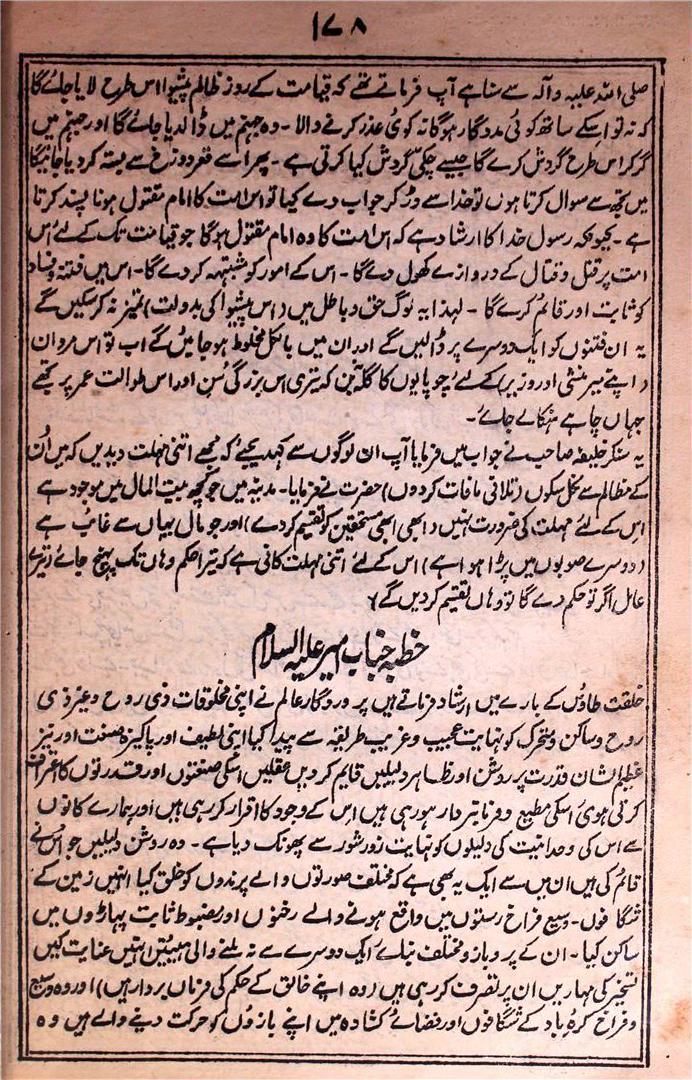 ۱۷۸
صلی اللہ علیہ و آلہ سے سنا ہے آپ فرماتے تھے کہ قیامت کے روز ظالم پیشوا اس طرح لایا جائے گا
کہ نہ تو اسکے ساتھ کوئی مددگار ہوگا نہ کوئی عذر کرنے والا ۔ وہ جہنم میں ڈالدیا جائے گا اور جہنم میں
گر کر اس طرح گردش کرے گا جیسے چکی گردش کیا کرتی ہے ۔ پھر اسے قعر دوزخ سے بستہ کر دیا جائیگا
میں تجھ سے سوال کرتا ہوں تو خدا سے ڈر کر جواب دے کیا تو اس امت کا امام مقتول ہونا پسند کرتا
ہے ۔ کیونکہ رسول خدا کا ارشاد ہے کہ اس امت کا وہ امام مقتول ہوگا جو قیامت تک کے لئے اس
امت پر قتل و قتال کے دروازے کھول دے گا ۔ اس کے امور کو مشتبہ کر دے گا ۔ اس میں فتنہ و فساد
کو ثابت اور قائم کرے گا ۔ لہذا یہ لوگ حق و باطل میں (اس پیشوا کی بدولت) تمیز نہ کر سکیں گے
یہ ان فتنوں کو ایک دوسرے پر ڈالیں گے اور ان میں بالکل مخلوط ہو جائیں گے اب تو اس مروان
(اپنے میر منشی اور وزیر) کے لئے چوپایوں کا گلہ نہ بن کہ تیری اس بزرگی سن اور اس طوالت عمر پر تجھے
جہاں چاہے ہنکالے جائے ۔
یہ سنکر خلیفہ صاحب نے جواب میں فرمایا آپ ان لوگوں سے کہدیجئے کہ مجھے اتنی مہلت دیدیں کہ میں اُن
کے مظالم سے نکل سکوں (تلافی مافات کر دوں) حضرت نے فرمایا ۔ مدینہ میں جو کچھ بیت المال میں موجود ہے
اس کے لئے مہلت کی ضرورت نہیں (ابھی ابھی مستحقین کو تقسیم کر دے) اور جو مال یہاں سے غائب ہے
(دوسرے صوبوں میں پڑا ہوا ہے) اس کے لئے اتنی مہلت کافی ہے کہ تیرا حکم وہاں تک پہنچ جائے (تیرے
عامل اگر تو حکم دے گا تو وہاں تقسیم کر دیں گے)
خطبہ جناب امیر علیہ السلام
خلقت طاؤس کے بارے میں ارشاد فرماتے ہیں پروردگار عالم نے اپنی مخلوقات ذی روح و غیر ذی
روح و ساکن و متحرک کو نہایت عجیب و غریب طریقہ سے پیدا کیا اپنی لطیف اور پاکیزہ صنعت اور نیز
عظیم الشان قدرت پر روشن اور ظاہر دلیلیں قایم کر دیں عقلیں اسکی صنعتوں اور قدرتوں کا اعتراف
کرتی ہوئی اسکی مطیع و فرمانبردار ہو رہی ہیں اس کے وجود کا اقرار کر رہی ہیں اور ہمارے کانوں
سے اس کی وحدانیت کی دلیلوں کو نہایت زور شور سے پھونک دیا ہے ۔ وہ روشن دلیلیں جو اس نے
قائم کی ہیں ان میں سے ایک یہ بھی ہے کہ مختلف صورتوں والے پرندوں کو خلق کیا انہیں زمین کے
شگافوں ۔ وسیع فراخ رستوں میں واقع ہونے والے رخنوں اور مضبوط ثابت پہاڑوں میں
ساکن کیا ۔ ان کے پر و بازو مختلف بنائے ایک دوسرے سے نہ ملنے والی ہیئتیں انہیں عنایت کیں
تسخیر کی مہاریں ان پر تصرف کر رہی ہیں (وہ اپنے خالق کے حکم کی فرماں بردار ہیں) اور وہ وسیع
و فراخ کرۂ باد کے شگافوں اور فضائے کشادہ میں اپنے بازوں کو حرکت دینے والے ہیں وہ